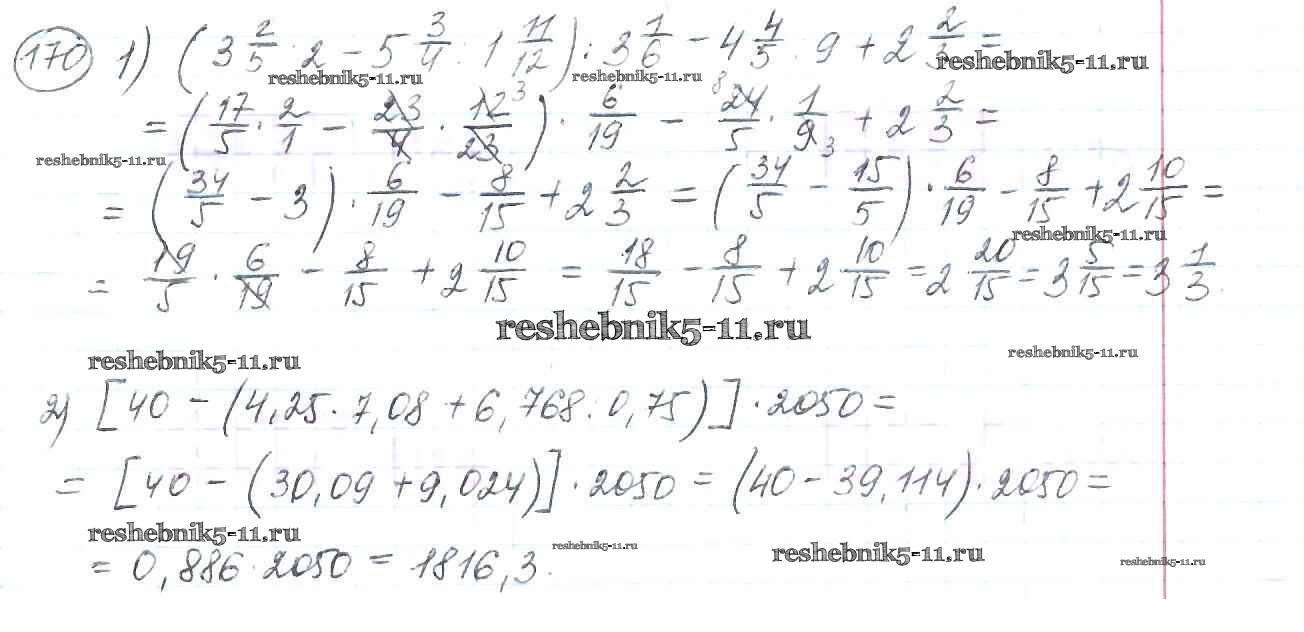 170 1) (3 2/5 · 2 − 5 3/4 : 1 11/12) : 3 1/6 − 4 4/5 : 9 + 2 2/3 =
reshebnik5-11.ru reshebnik5-11.ru reshebnik5-11.ru
= (17/5 · 2/1 − 23/4 · 12/23 3) · 6/19 − 8 24/5 · 1/9 3 + 2 2/3 =
reshebnik5-11.ru
= (34/5 − 3) · 6/19 − 8/15 + 2 2/3 = (34/5 − 15/5) · 6/19 − 8/15 + 2 10/15 =
reshebnik5-11.ru
= 19/5 · 6/19 − 8/15 + 2 10/15 = 18/15 − 8/15 + 2 10/15 = 2 20/15 = 3 5/15 = 3 1/3.
reshebnik5-11.ru
reshebnik5-11.ru reshebnik5-11.ru
2) [40 − (4,25 · 7,08 + 6,768 : 0,75)] · 2050 =
= [40 − (30,09 + 9,024)] · 2050 = (40 − 39,114) · 2050 =
reshebnik5-11.ru reshebnik5-11.ru reshebnik5-11.ru reshebnik5-11.ru
= 0,886 · 2050 = 1816,3.